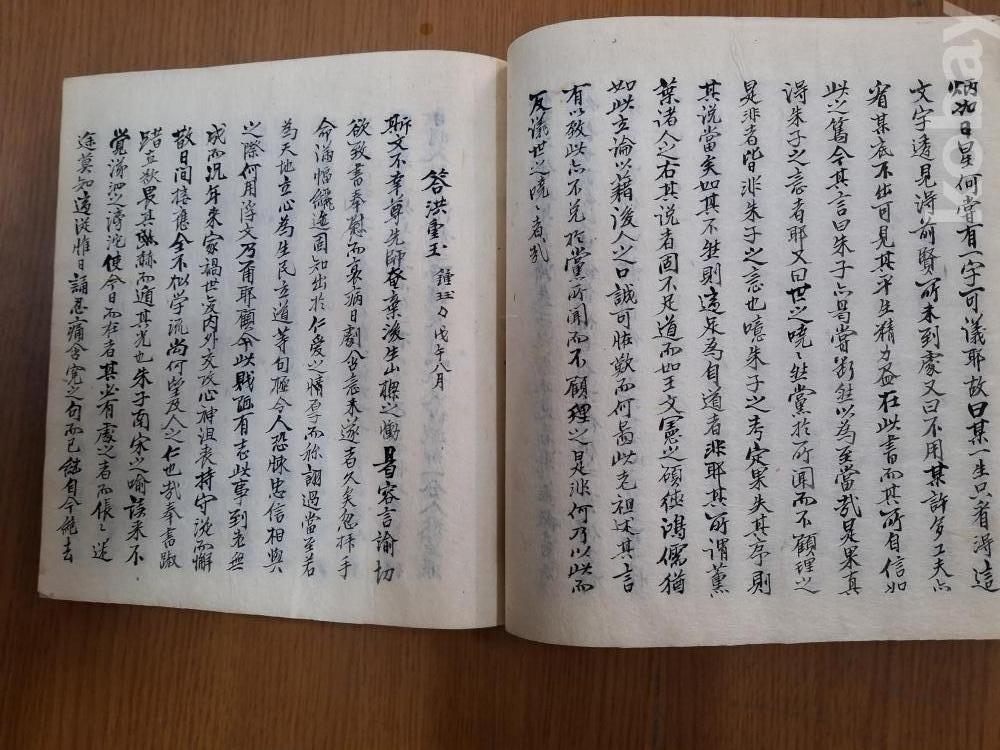 炳如日星何嘗有一字可議耶故曰某一生只看得這
文字透見得前賢所未到處又曰不用某許多工夫亦
看某底不出可見其平生精力盡在此書而其所自信如
此之篤今其言曰朱子亦曷嘗斷然以爲至當哉是果眞
得朱子之意者耶又曰世之嘵〻然黨於所聞而不顧理之
是非者皆非朱子之意也噫朱子之考定果失其序則
其說當矣如其不然則這是爲自道者非耶其所謂董
葉諸人之右其說者固不足道而如王文憲之碩德鴻儒猶
如此立論以藉後人之口誠可恠歎而何啚此老祖述其言
有以致此亦不免於黨所聞而不顧理之是非何乃以此而
反議世之嘵〻者哉
答洪聖玉 鍾 戊午八月
斯文不幸尊先師奄棄後生出聯之慟曷容言諭切
欲致書奉慰而衰病日劇含意未遂者久矣忽拜手
命滿幅纚迤固知出於仁愛之情厚而稱詡過當至若
爲天地立心爲生民立道等句極令人恐悚忠信相與
之際何用浮文乃爾耶顧今此賤陋有志此事到老無
成而況年來家禍世變內外交攻心神沮喪持守沈而懈
散日間接應全不似學流尚何望及人之仁也哉奉書踧
踖亟欲晨其 而遁其光也朱子南宋之喻讀來不
覺涕泗之滂沱使今日而在者其必有處之者而倀〻迷
途莫知適從惟日誦忍痛含冤之句而已 自今能去